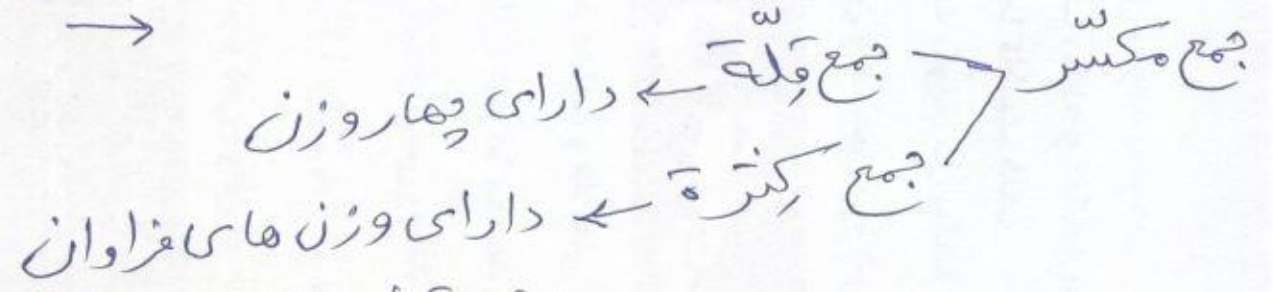 جمع مکسّر
جمع قِلّة ← دارای چهار وزن
جمع کِثرة ← دارای وزن های فراوان